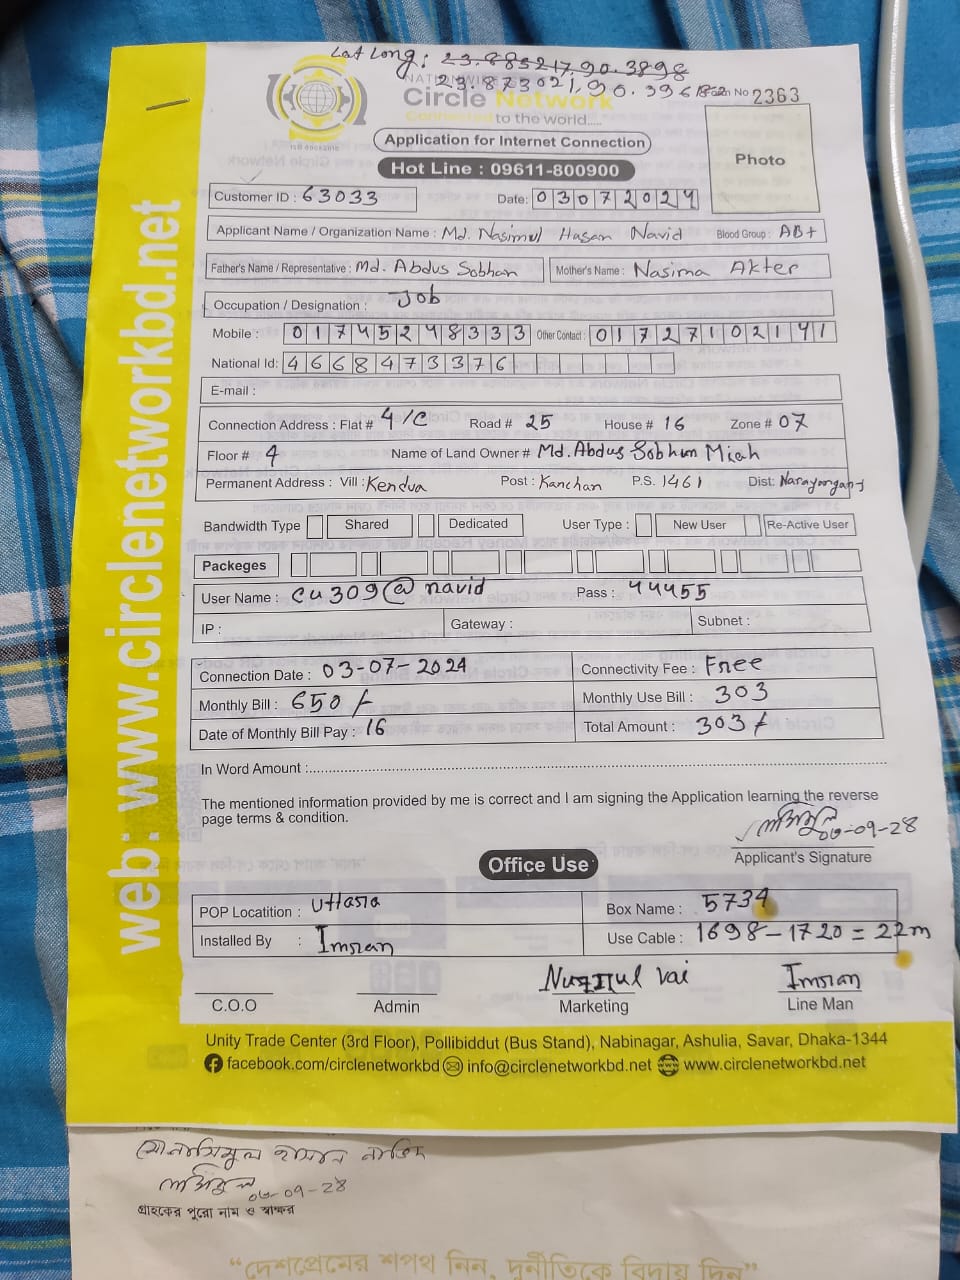 Lat Long: 23.885217,90.3898
23.873021,90.39618
NATIONWIDE
Circle Network
Connected to the world.....
ISN No 2363
Application for Internet Connection
Hot Line : 09611-800900
Photo
Customer ID : 63033
Date: 03072024
Applicant Name / Organization Name : Md. Nasimul Hasan Navid Blood Group : AB+
Father's Name / Representative : Md. Abdus Sobhan Mother's Name : Nasima Akter
Occupation / Designation : Job
Mobile : 01745248333 Other Contact : 01727102141
National Id: 4668473376
E-mail :
Connection Address : Flat # 4/C Road # 25 House # 16 Zone # 07
Floor # 4 Name of Land Owner # Md. Abdus Sobhan Miah
Permanent Address : Vill : Kendua Post : Kanchan P.S. 1461 Dist: Narayanganj
Bandwidth Type Shared Dedicated User Type : New User Re-Active User
Packeges
User Name : cu309@navid Pass : 44455
IP : Gateway : Subnet :
Connection Date : 03-07-2024 Connectivity Fee : Free
Monthly Bill : 650/- Monthly Use Bill : 303
Date of Monthly Bill Pay : 16 Total Amount : 303/-
In Word Amount :
The mentioned information provided by me is correct and I am signing the Application learning the reverse
page terms & condition.
০৩-০৭-২৪
Applicant's Signature
Office Use
POP Locatition : Uttara Box Name : 5734
Installed By : Imran Use Cable : 1698-1720=22m
Vai Imran
C.O.O Admin Marketing Line Man
Unity Trade Center (3rd Floor), Pollibiddut (Bus Stand), Nabinagar, Ashulia, Savar, Dhaka-1344
facebook.com/circlenetworkbd info@circlenetworkbd.net www.circlenetworkbd.net
web: www.circlenetworkbd.net
মোঃ নাসিমুল হাসান নাভিদ
নাসিমুল ০৩-০৭-২৪
গ্রাহকের পুরো নাম ও স্বাক্ষর
“দেশপ্রেমের শপথ নিন, দুর্নীতিকে বিদায় দিন”